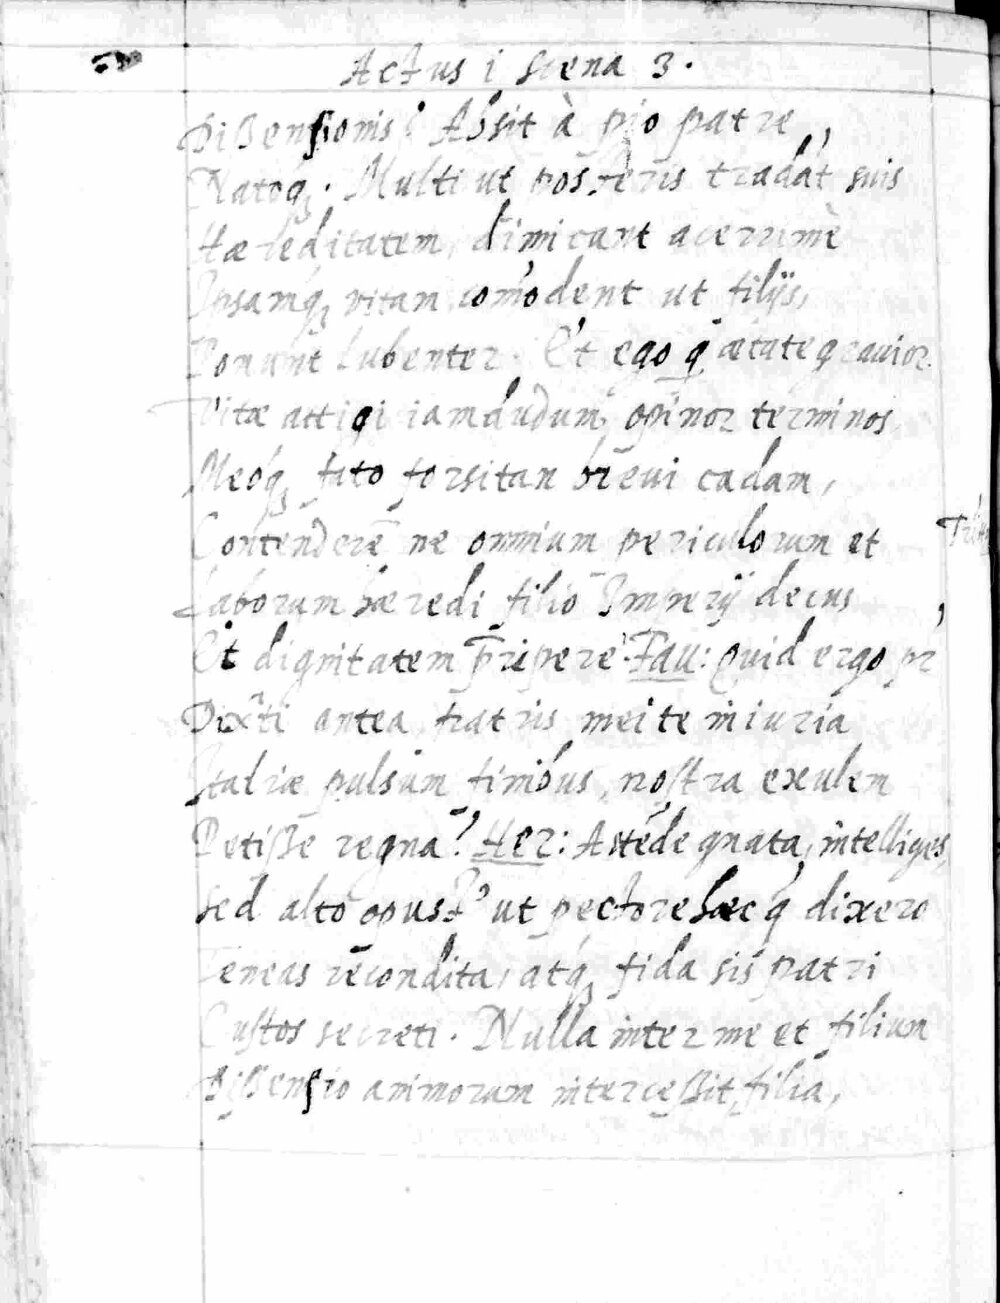 Actus i scena 3.
Dißensionis? Absit à pio patre,
Natoq́ꝫ. Multi ut posteris tradāt suis
Hæreditatem, dimicant acerrimè
Ipsamq́ꝫ vitam com̄odent ut filijs,
Ponunt lubenter. Et ego q̨ ætate grauior
Vitæ attigi iamdudum, opinor terminos
Meóq́ꝫ fato forsitan breui cadam,
Contenderē ne omnium periculorum et
Laborum hæredi filio Imperij decus
Et dignitatem p̄ripere? Fau: Quid ergo pr̄
Dix̂ti antea, fratris mei te iniuria
Italiæ pulsum finibus, nostra exulem
Petiße regna? Her: Astéde gnata, intelliges,
Sed alto opus ut pectore hæc q̄ dixero
Teneas recondita, atq́ꝫ fida sis patri
Custos secreti. Nulla inter me et filium
Dißensio animorum interceßit, filia,